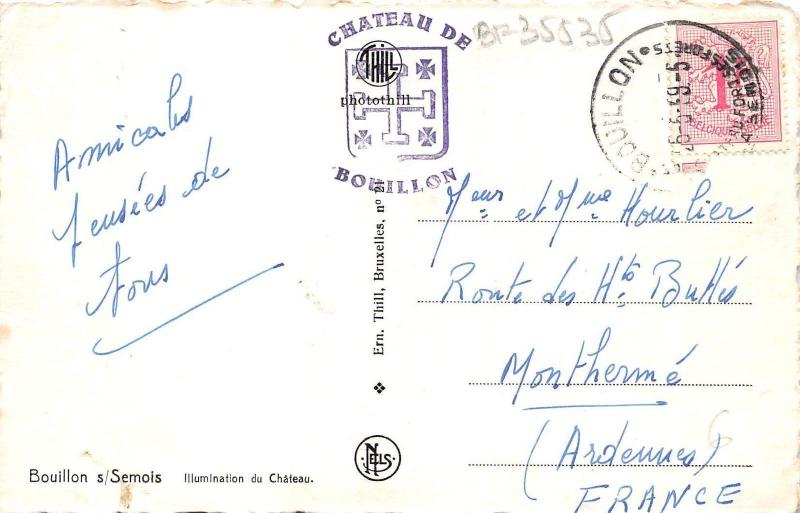 CHATEAU DE
THILL
photothill
BOUILLON
BF35535
BOUILLON
1
BELGIQUE
Amicales
pensées de
tous
Ern. Thill, Bruxelles, nº 21
Meur et Mme Hourlier
Route des Hts Buttés
Monthermé
(Ardennes)
FRANCE
NELS
Bouillon s/Semois Illumination du Château.